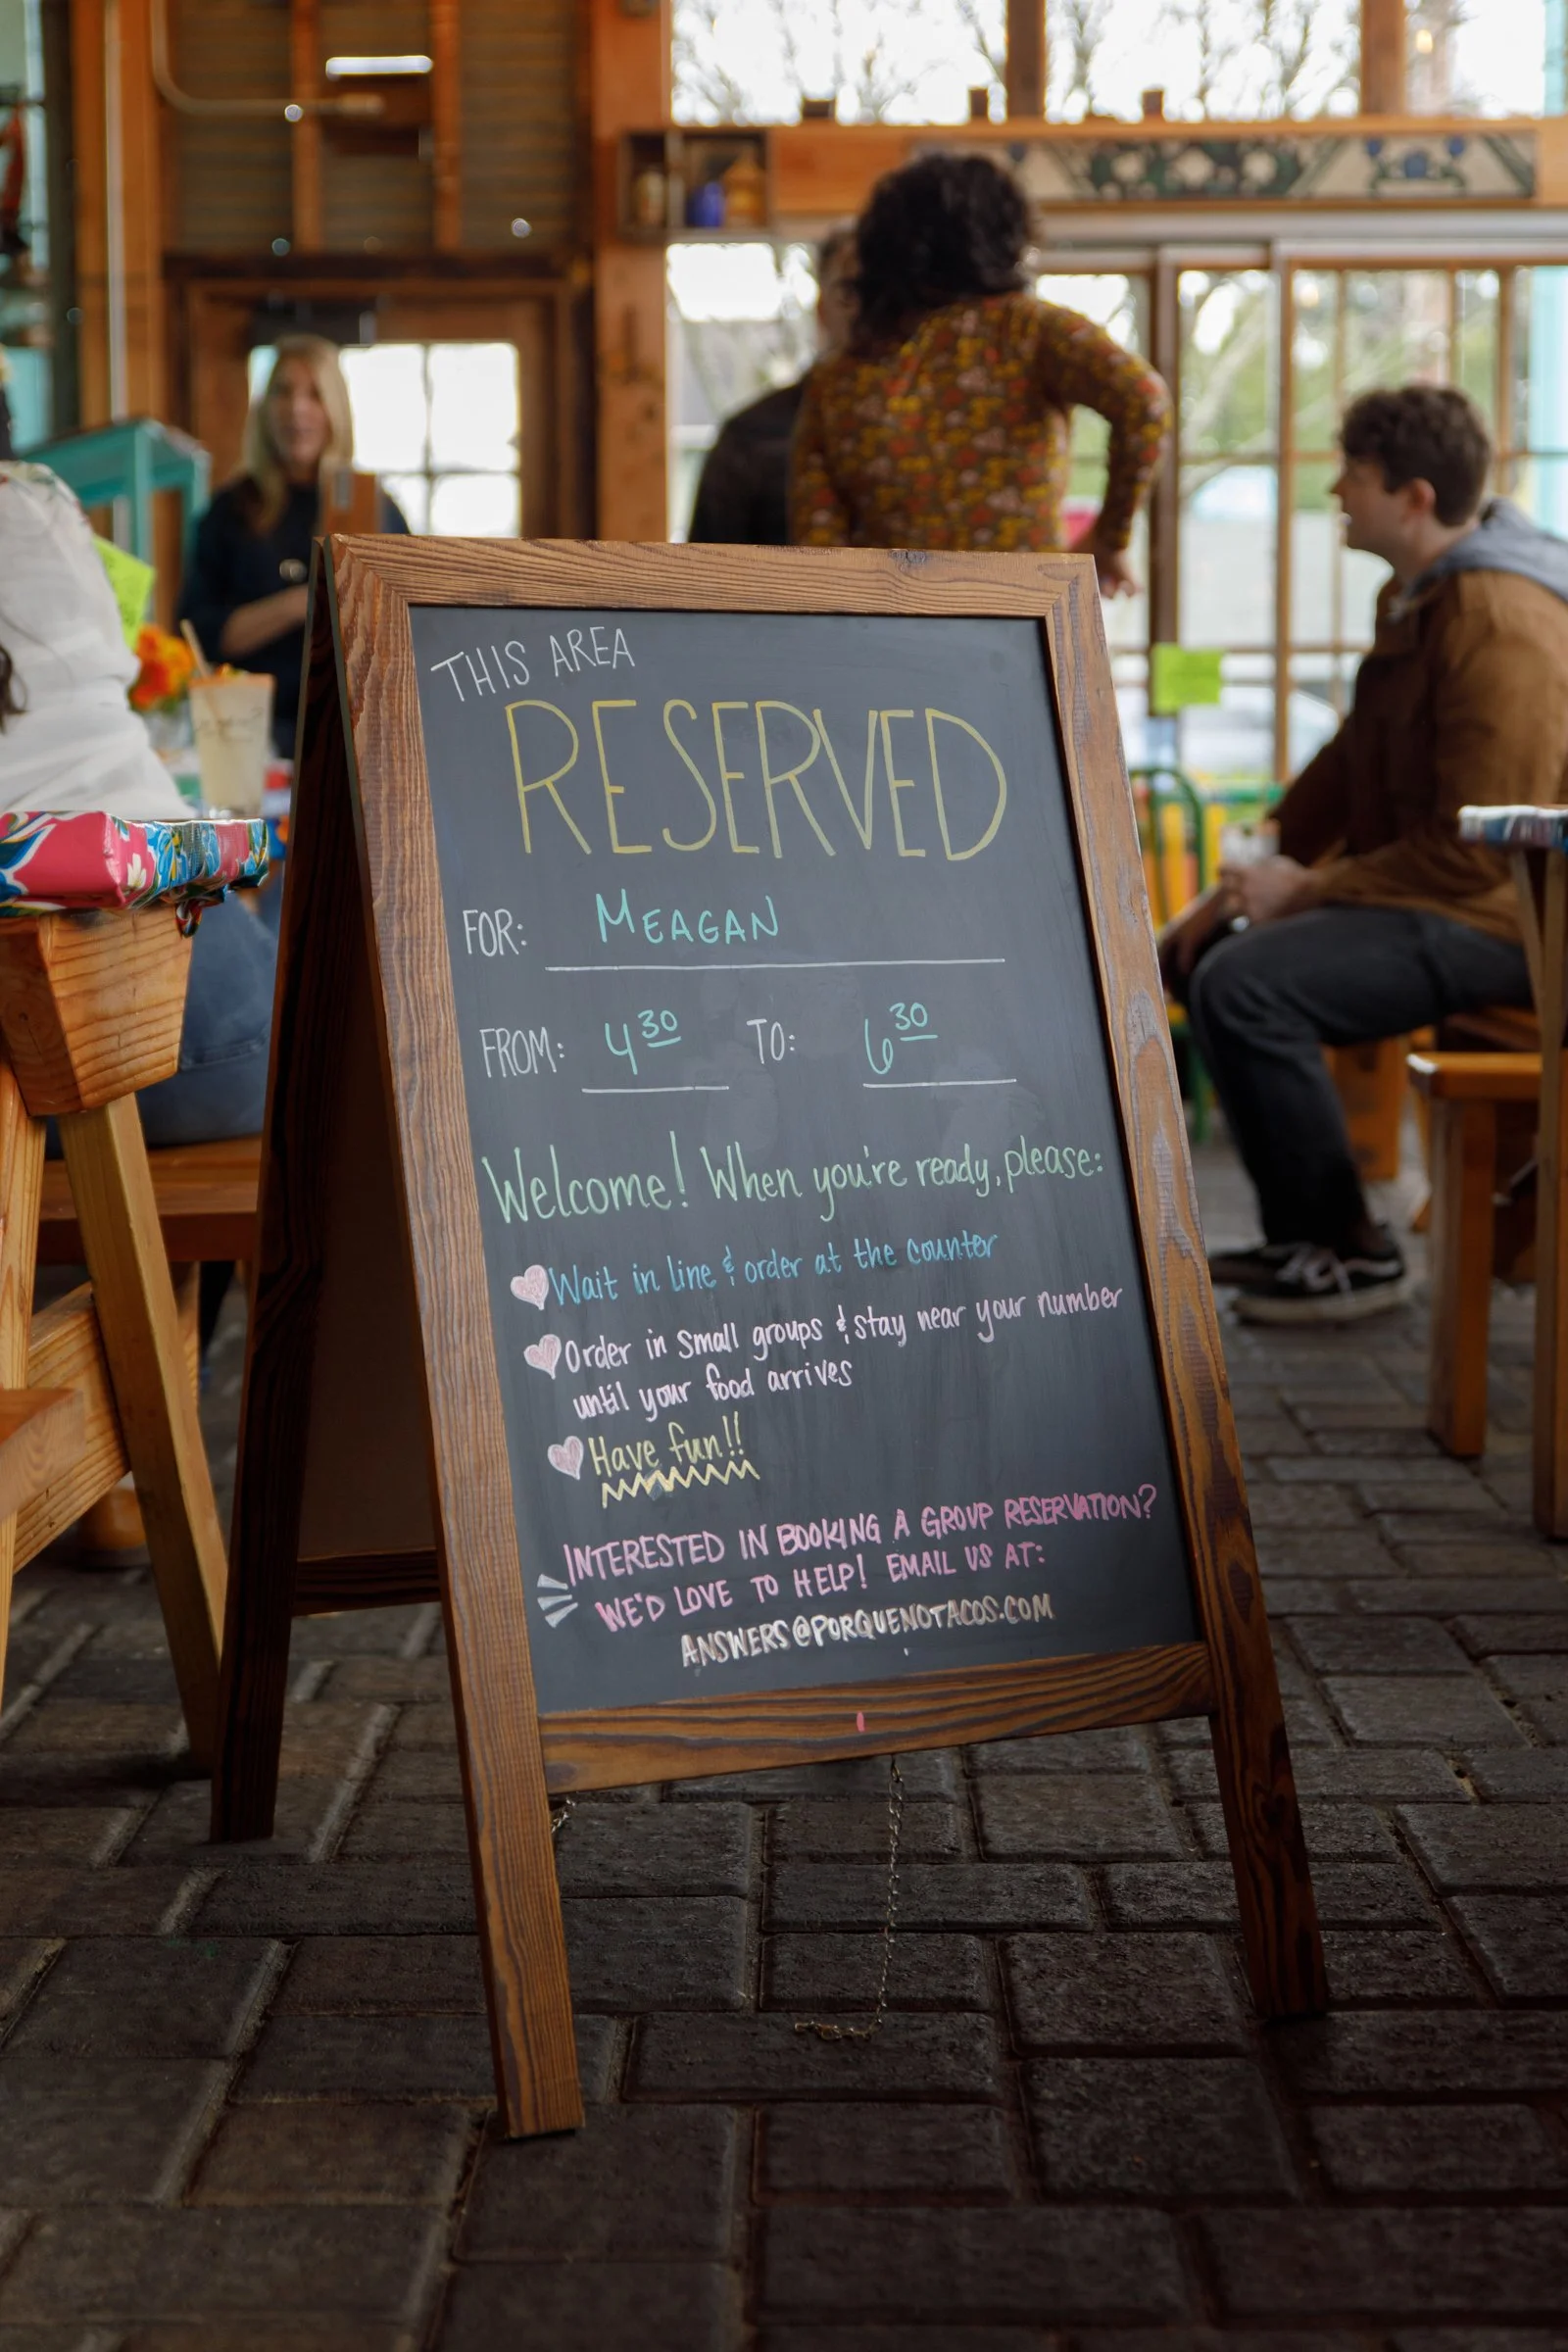 THIS AREA
RESERVED
FOR: MEAGAN
FROM: 4 30 TO: 6 30
Welcome! When you're ready, please:
Wait in line & order at the counter
Order in small groups & stay near your number
until your food arrives
Have fun!!
INTERESTED IN BOOKING A GROUP RESERVATION?
WE'D LOVE TO HELP! EMAIL US AT:
ANSWERS@PORQUENOTACOS.COM